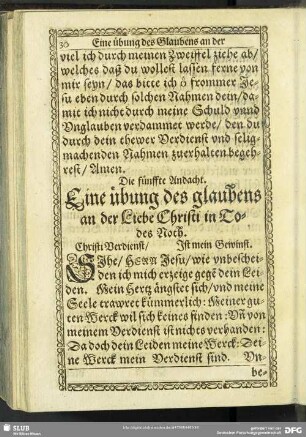 30 Eine übung des Glaubens an der
viel ich durch meinen Zweiffel ziehe ab/
welches daß du wollest lassen ferne von
mir seyn/ das bitte ich ô frommer Je-
su eben durch solchen Nahmen dein/ da-
mit ich nicht durch meine Schuld vnnd
Vnglauben verdammet werde/ den du
durch dein thewer Verdienst vnd selig-
machenden Nahmen zuerhalten begeh-
rest/ Amen.
Die fünffte Andacht.
Eine übung des glaubens
an der Liebe Christi in To-
des Noth.
Christi Verdienst/ Ist mein Gewinst.
SIhe/ HErr Jesu/ wie vnbeschei-
den ich mich erzeige gegē dein Lei-
den. Mein Hertz ängstet sich/ vnd meine
Seele trawret kümmerlich: Meiner gu-
ten Werck wil sich keines finden: Vn̄ von
meinem Verdienst ist nichts verhanden:
Da doch dein Leiden meine Werck: Dei-
ne Werck mein Verdienst sind. Vn-
be-
SLUB
Wir führen Wissen.
gefördert von der
Deutschen Forschungsgemeinschaft
DFG